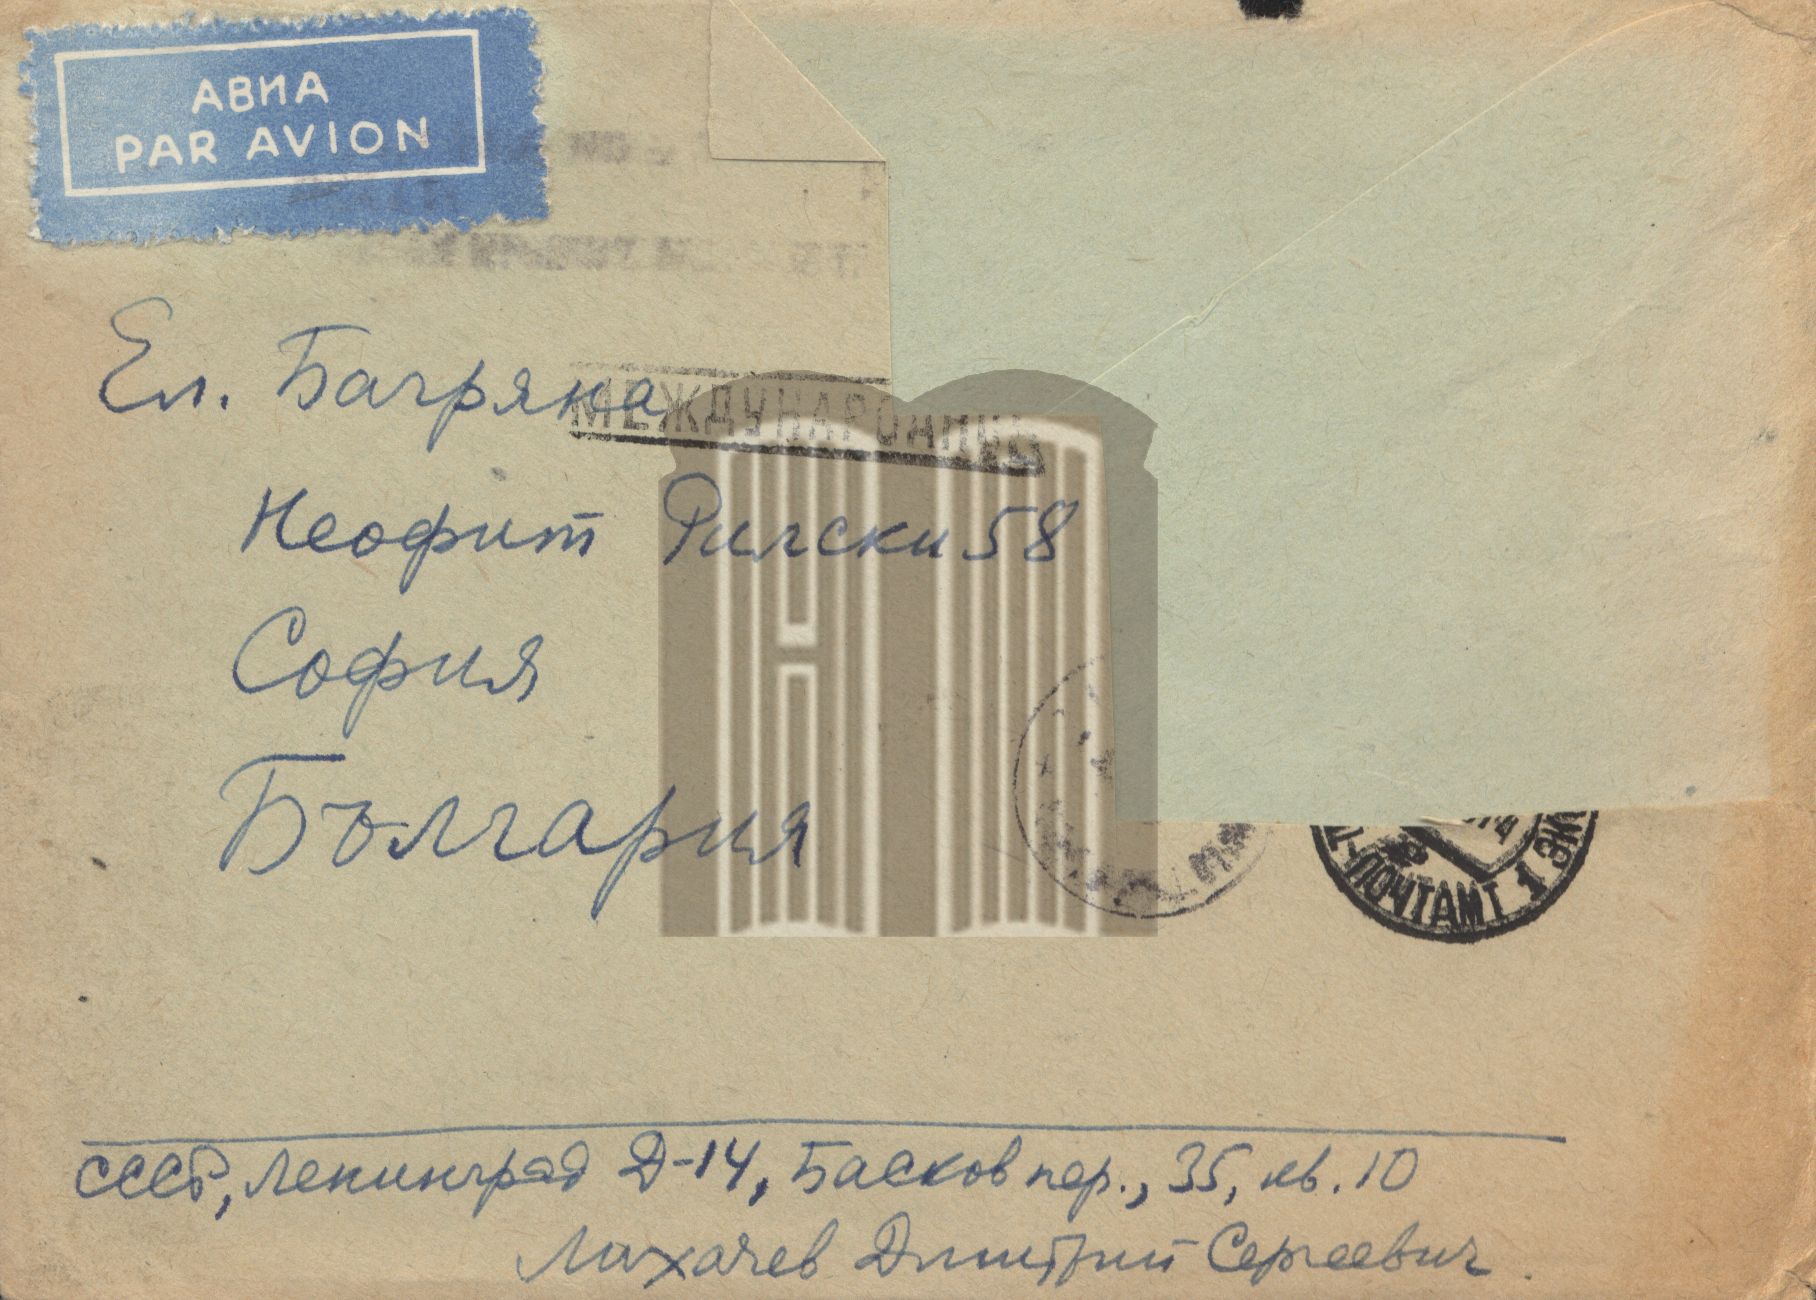 АВИА
PAR AVION
Ел. Багряна
МЕЖДУНАРОДНОЕ
Неофит Рилски 58
София
България
ПОЧТАМТ 1
СССР, Ленинград Д-14, Басков пер., 35, кв. 10
Лихачев Дмитрий Сергеевич.